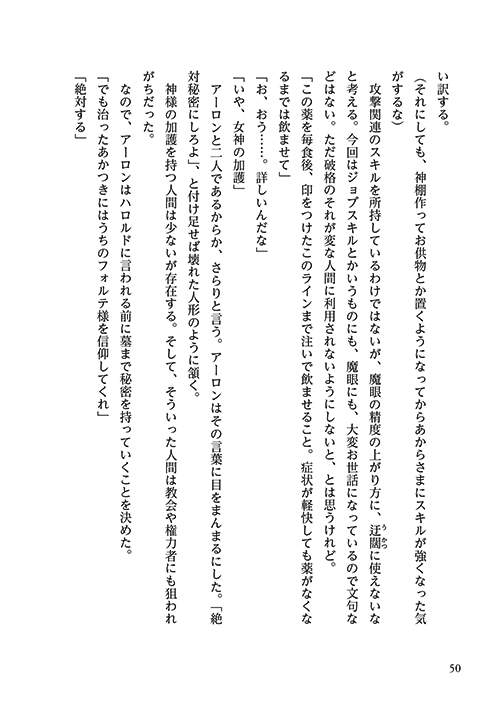 い訳する。
（それにしても、神棚作ってお供物とか置くようになってからあからさまにスキルが強くなった気
がするな）
攻撃関連のスキルを所持しているわけではないが、魔眼の精度の上がり方に、迂闊に使えないな
と考える。今回はジョブスキルとかいうものにも、魔眼にも、大変お世話になっているので文句な
どはない。ただ破格のそれが変な人間に利用されないようにしないと、とは思うけれど。
「この薬を毎食後、印をつけたこのラインまで注いで飲ませること。症状が軽快しても薬がなくな
るまでは飲ませて」
「お、おう……。詳しいんだな」
「いや、女神の加護」
アーロンと二人であるからか、さらりと言う。アーロンはその言葉に目をまんまるにした。「絶
対秘密にしろよ」、と付け足せば壊れた人形のように頷く。
神様の加護を持つ人間は少ないが存在する。そして、そういった人間は教会や権力者にも狙われ
がちだった。
なので、アーロンはハロルドに言われる前に墓まで秘密を持っていくことを決めた。
「でも治ったあかつきにはうちのフォルテ様を信仰してくれ」
「絶対する」
50